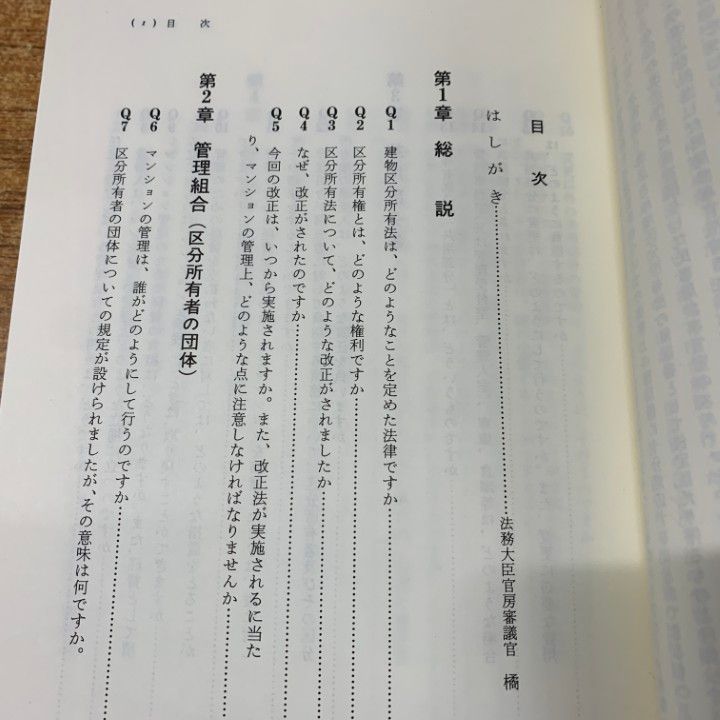 (2) 目 次
目 次
はしがき……………法務大臣官房審議官 橘
第1章 総 説
Q1 建物区分所有法は、どのようなことを定めた法律ですか……………
Q2 区分所有権とは、どのような権利ですか……………
Q3 区分所有法について、どのような改正がされましたか……………
Q4 なぜ、改正がされたのですか……………
Q5 今回の改正は、いつから実施されますか。また、改正法が実施されるに当た
り、マンションの管理上、どのような点に注意しなければなりませんか……………
第2章 管理組合（区分所有者の団体）
Q6 マンションの管理は、誰がどのようにして行うのですか……………
Q7 区分所有者の団体についての規定が設けられましたが、その意味は何ですか。